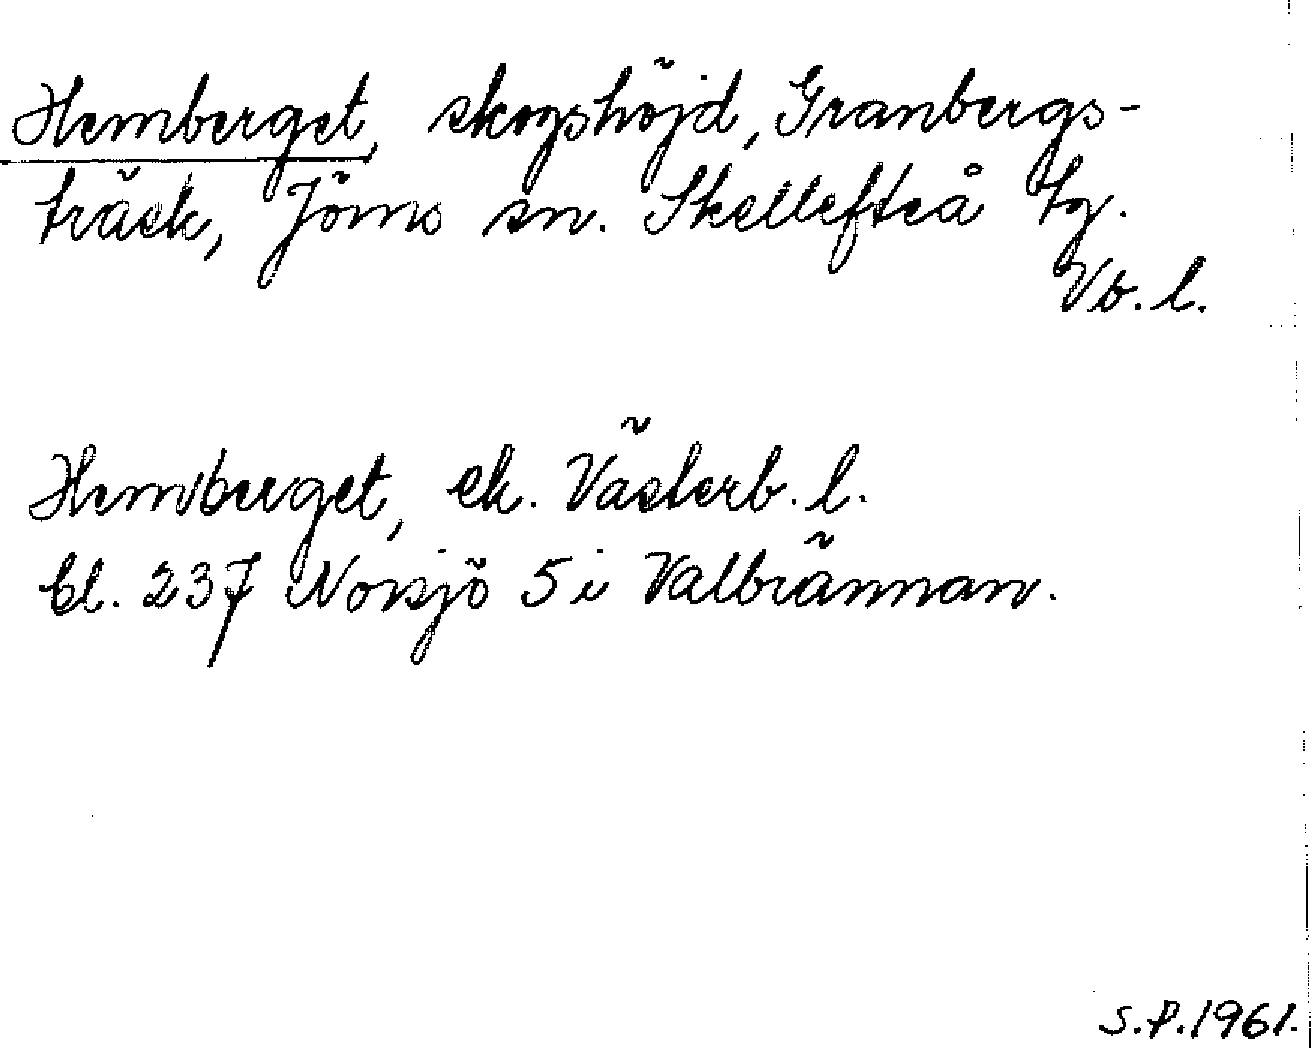 Hemberget, skogshöjd, Granbergs-
träsk, Jörns sn. Skellefteå tg.
Vb. l.
Hemberget, ek. Västerb. l.
bl. 237 Norsjö 5 i Valbrännan.
S.P. 1961.